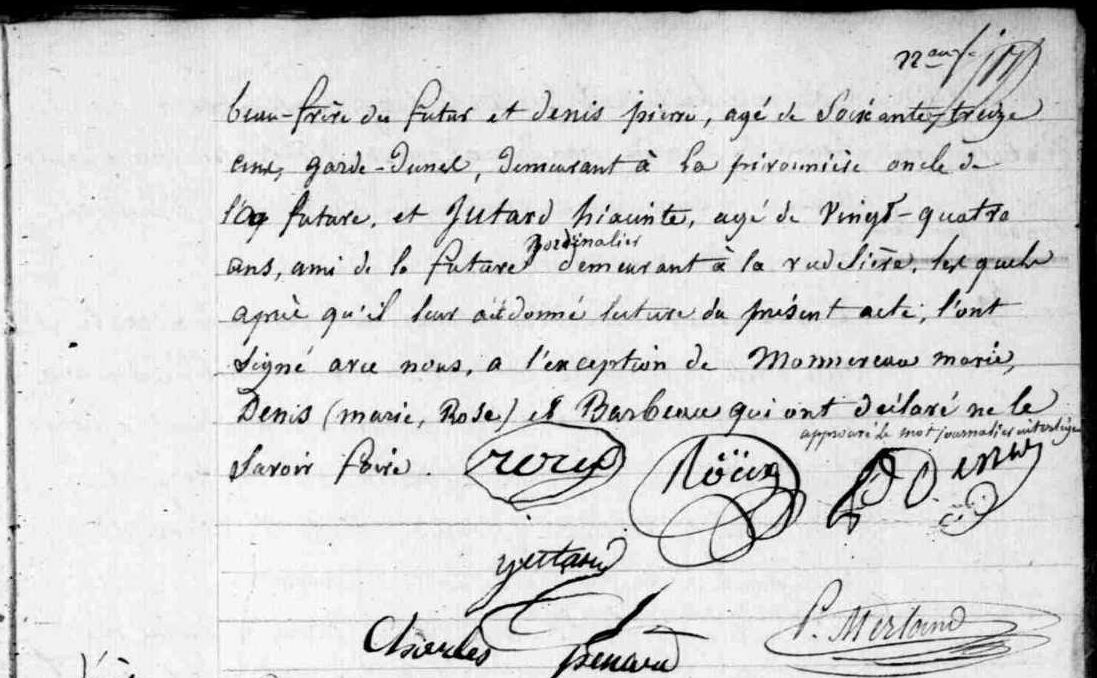 beau-frère du futur et denis pierre, agé de Soixante-treize
ans, garde-dunes, demeurant à la pironnière oncle de
la future, et Jutard hiacinte, agé de Vingt-quatre
journalier
ans, ami de la future demeurant à la rudelière, lesquels
après qu'il leur a été donné lecture du présent acte, l'ont
Signé avec nous, a l'exception de Monnereau marie,
Denis (marie, Rose) et Barbeau qui ont déclaré ne le
approuvé le mot journalier interligne
Savoir faire.
roux Röux
jutard
Charles Penard P. Merland